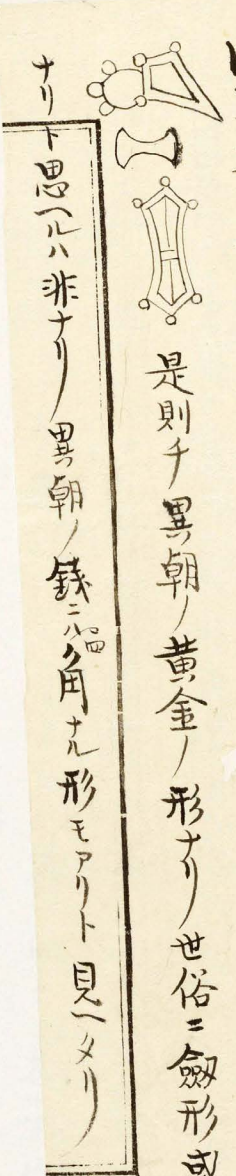 是則チ異朝ノ黄金ノ形ナリ世俗ニ劔形或
ナリト思ヘルハ非ナリ異朝ノ錢ニハ角ナル形モアリト見ヘタリ